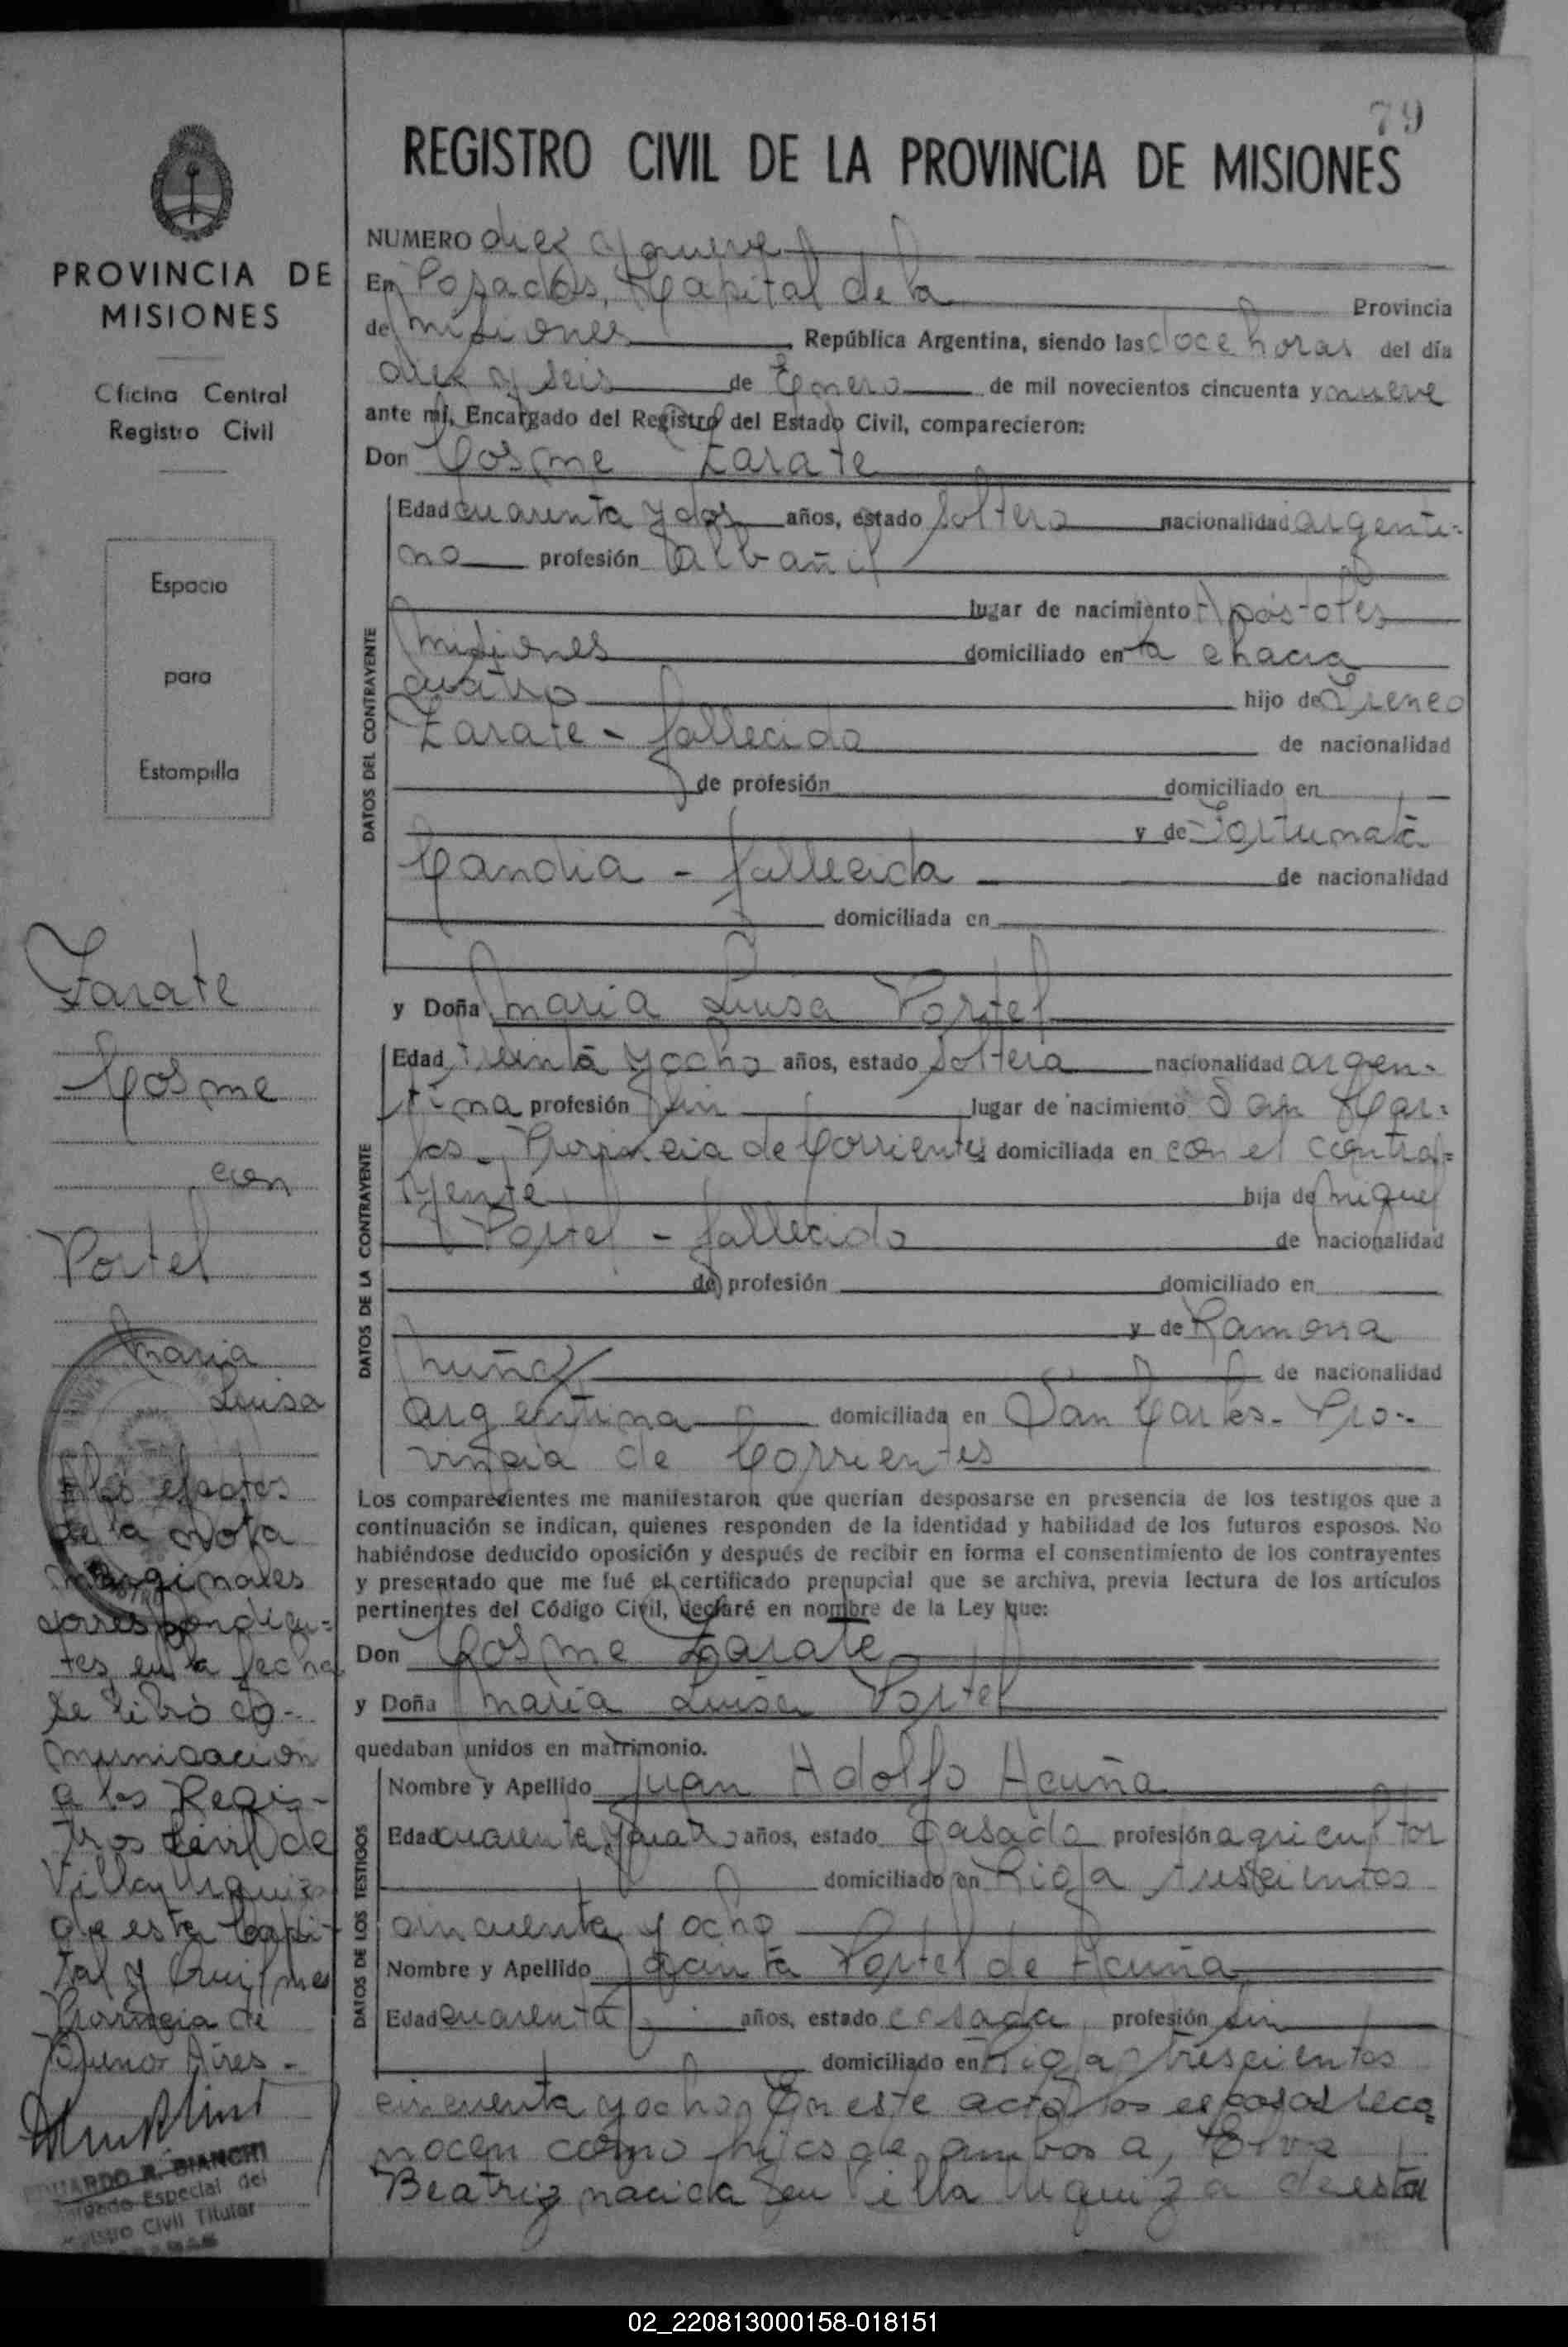 79
REGISTRO CIVIL DE LA PROVINCIA DE MISIONES
PROVINCIA DE
MISIONES
Oficina Central
Registro Civil
Espacio
para
Estampilla
Zarate
Cosme
con
Portel
Maria
Luisa
A los efectos
de la nota
marginales
correspondien=
tes en la fecha
se libró co-
municacion
a los Regis-
tros Civil de
Villa Urquiza
de esta Capi-
tal y Quilmes
Provincia de
Buenos Aires -
EDUARDO R. BIANCHI
Encargado Especial del
Registro Civil Titular
NUMERO diez y nueve
En Posadas, Capital de la Provincia
de Misiones República Argentina, siendo las doce horas del día
diez y seis de Enero de mil novecientos cincuenta y nueve
ante mí, Encargado del Registro del Estado Civil, comparecieron:
Don Cosme Zarate
DATOS DEL CONTRAYENTE
Edad cuarenta y dos años, estado soltero nacionalidad argenti-
no profesión albañil
lugar de nacimiento Apóstoles
Misiones domiciliado en la chacra
cuatro hijo de Ireneo
Zarate - fallecido de nacionalidad
de profesión domiciliado en
y de Fortunata
Candia - fallecida de nacionalidad
domiciliada en
y Doña Maria Luisa Portel
DATOS DE LA CONTRAYENTE
Edad treinta y ocho años, estado soltera nacionalidad argen-
tina profesión sin lugar de nacimiento San Car-
los - Provincia de Corrientes domiciliada en con el contra=
yente hija de Miguel
Portel - fallecido de nacionalidad
de profesión domiciliado en
y de Ramona
Nuñez de nacionalidad
argentina domiciliada en San Carlos - Pro-
vincia de Corrientes
Los comparecientes me manifestaron que querían desposarse en presencia de los testigos que a
continuación se indican, quienes responden de la identidad y habilidad de los futuros esposos. No
habiéndose deducido oposición y después de recibir en forma el consentimiento de los contrayentes
y presentado que me fué el certificado prenupcial que se archiva, previa lectura de los artículos
pertinentes del Código Civil, declaré en nombre de la Ley que:
Don Cosme Zarate
y Doña Maria Luisa Portel
quedaban unidos en matrimonio.
DATOS DE LOS TESTIGOS
Nombre y Apellido Juan Adolfo Acuña
Edad cuarenta y cuatro años, estado casado profesión agricultor
domiciliado en Rioja trescientos
cincuenta y ocho
Nombre y Apellido Jacinta Portel de Acuña
Edad cuarenta años, estado casada profesión sin
domiciliado en Rioja trescientos
cincuenta y ocho. En este acto los esposos reco=
nocen como hijos de ambos a, Elva
Beatriz nacida en Villa Urquiza de esta
02_220813000158-018151